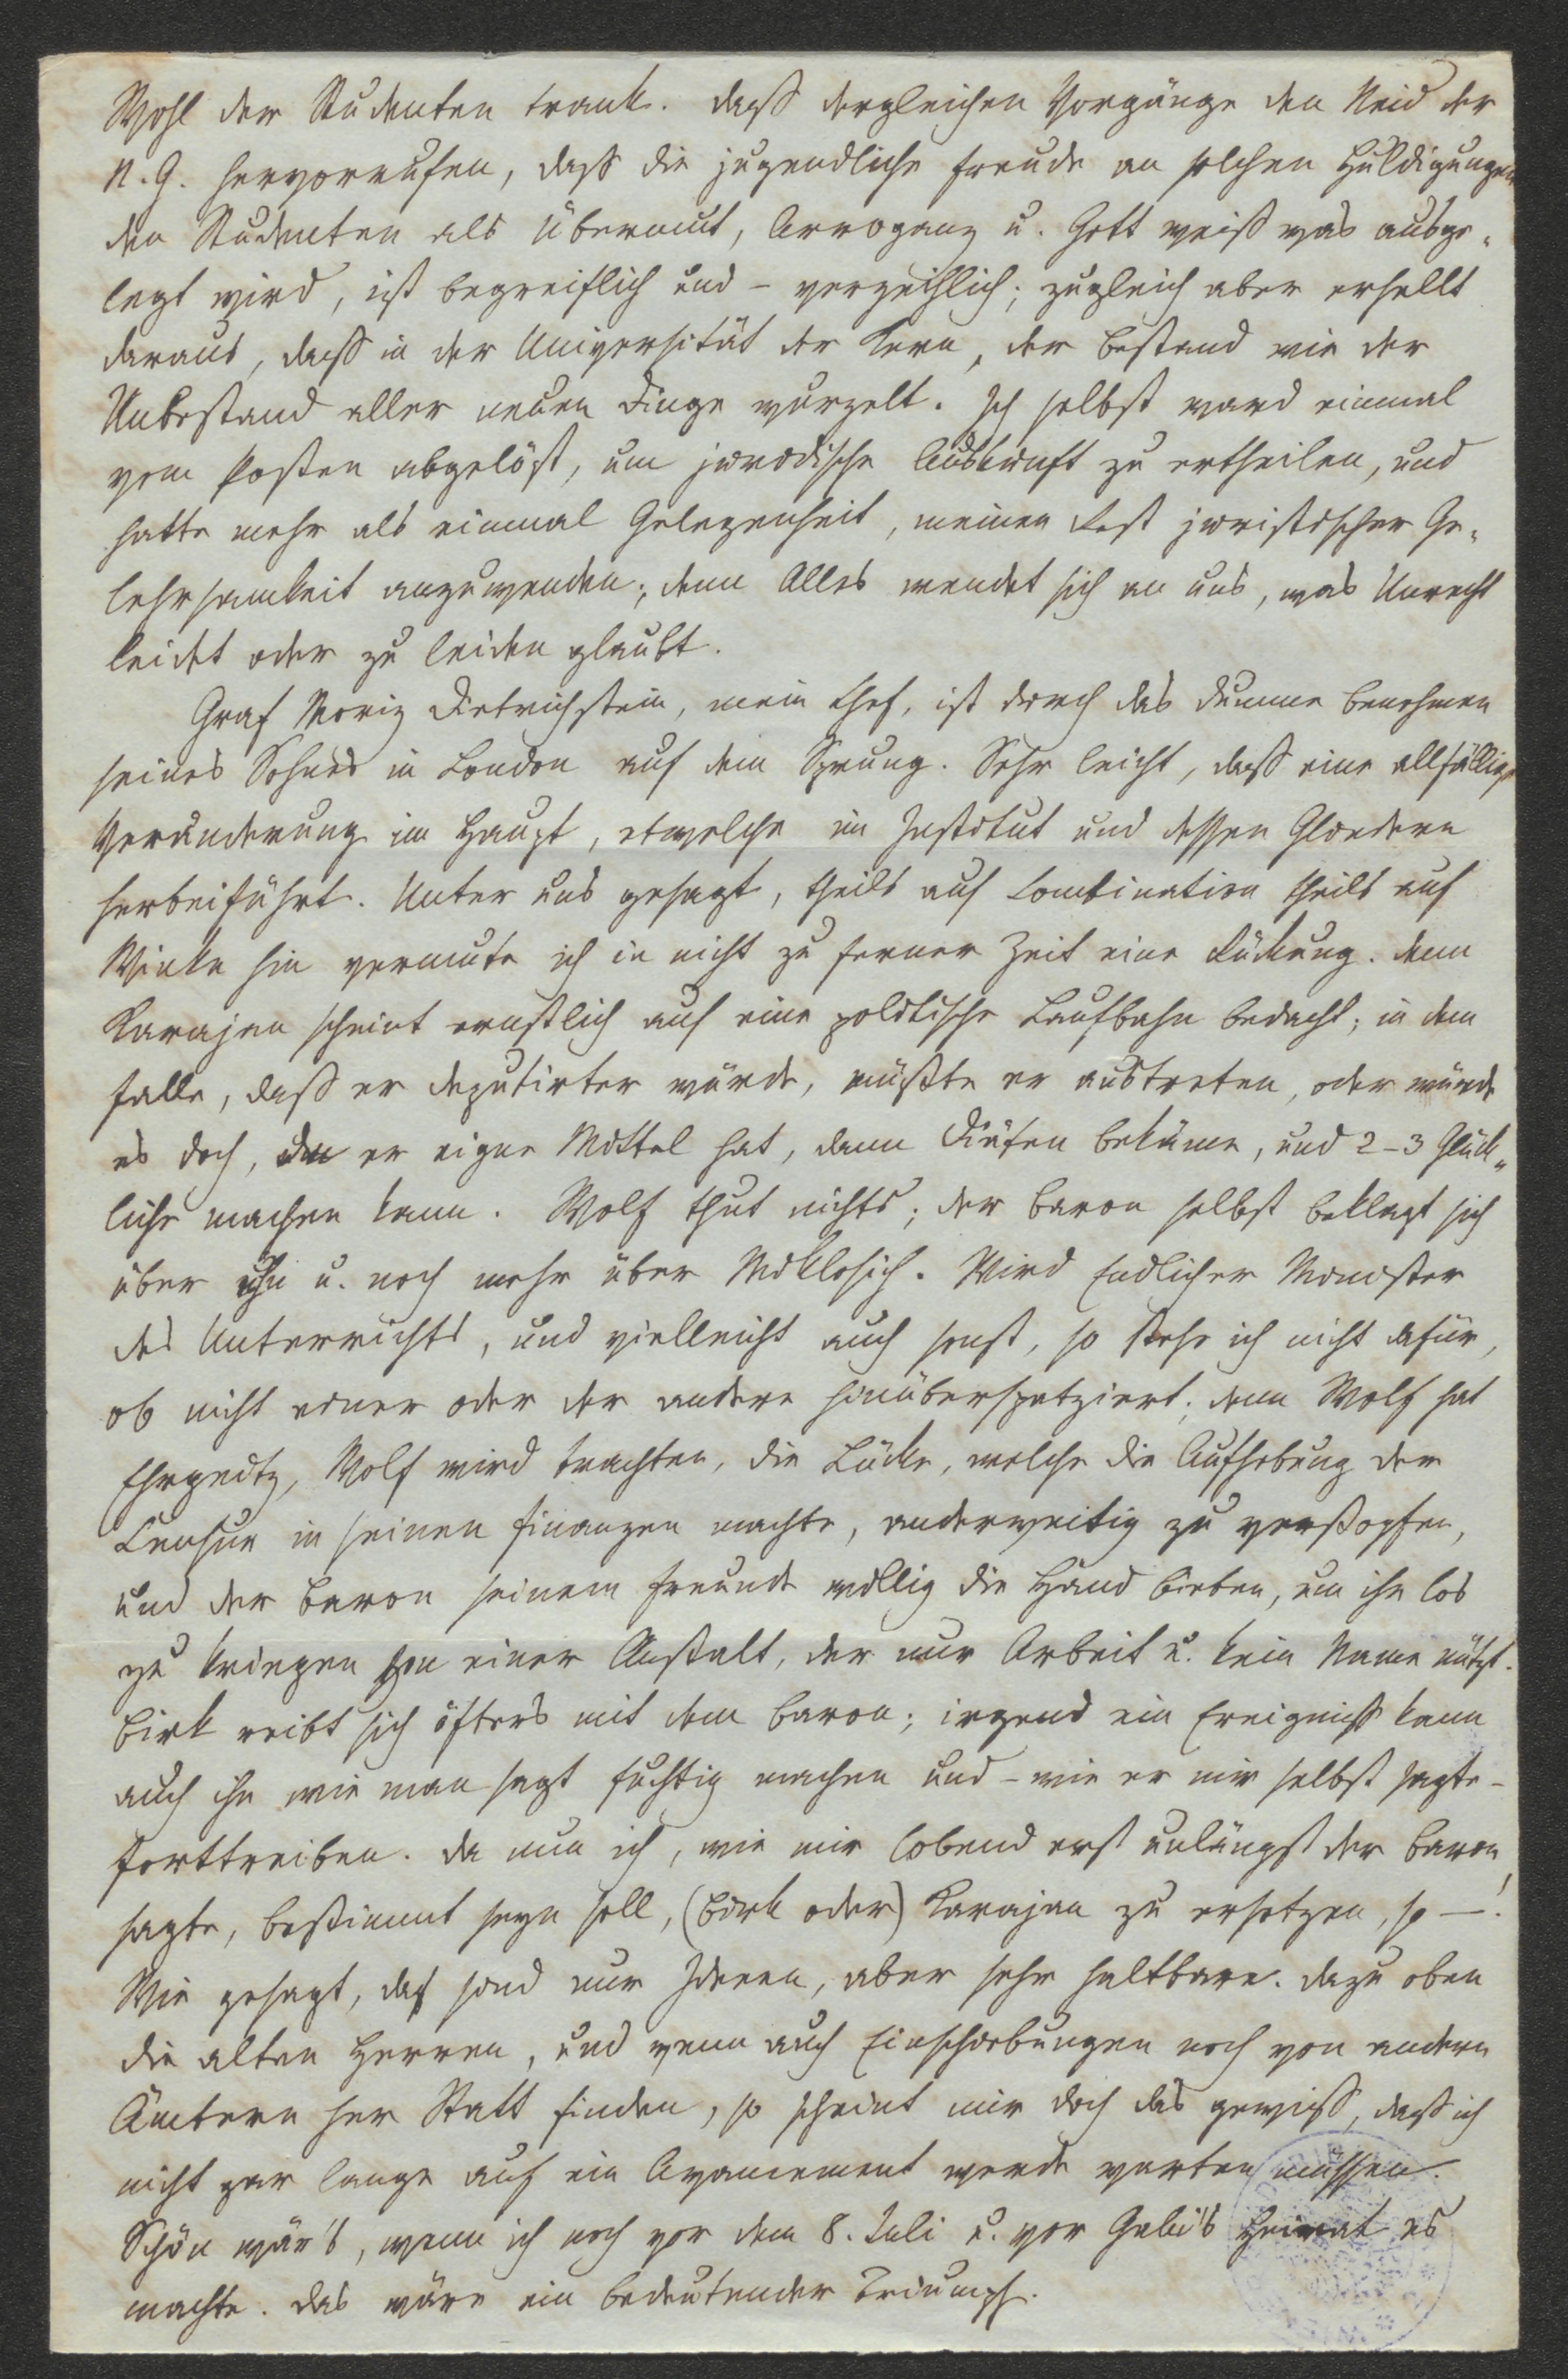 Wohl der Studenten trank. Daß dergleichen Vorgänge den Neid der
N. G. hervorrufen, daß die jugendliche Freude an solchen Huldigungen
den Studenten als Übermut, Arroganz u. Gott weiß was ausge„
legt wird, ist begreiflich und – verzeihlich; zugleich aber erhellt
daraus, daß in der Universität der Kern, der Bestand wie der
Unbestand aller neuen Dinge wurzelt. Ich selbst ward einmal
vom Posten abgelöst, um juridische Auskunft zu ertheilen, und
hatte mehr als einmal Gelegenheit, meinen Rest juristischer Ge„
lehrsamkeit anzuwenden; denn Alles wendet sich an uns, was Unrecht
leidet oder zu leiden glaubt.
Graf Moriz Dietrichstein, mein Chef, ist durch das dumme Benehmen
seines Sohnes in London auf dem Sprung. Sehr leicht, daß eine allfällige
Veränderung im Haupt, etwelche im Institut und dessen Gliedern
herbeiführt. Unter uns gesagt, theils auf Combination theils auf
Winke hin vermute ich in nicht zu ferner Zeit eine Rückung. Denn
Karajan scheint ernstlich auf eine politische Laufbahn bedacht; in dem
Falle, daß er Deputirter würde, müßte er austreten, oder würde
es doch, da er eigne Mittel hat, dann Diäten bekäme, und 2–3 Glück„
liche machen kann. Wolf thut nichts; der Baron selbst beklagt sich
über ihn u. noch mehr über Miklosich. Wird Endlicher Minister
des Unterrichts, und vielleicht auch sonst, so stehe ich nicht dafür,
ob nicht einer oder der andere hinüberspatziert; denn Wolf hat
Ehrgeitz, Wolf wird trachten, die Lücke, welche die Aufhebung der
Censur in seinen Finanzen machte, anderweitig zu verstopfen,
und der Baron seinem Freunde willig die Hand bieten, um ihn los
zu kriegen von einer Anstalt, der nur Arbeit u. kein Name nützt.
Birk reibt sich öfters mit dem Baron; irgend ein Ereigniß kann
auch ihn wie man sagt fuchtig machen und – wie er mir selbst sagte –
forttreiben. Da nun ich, wie mir lobend erst unlängst der Baron
sagte, bestimmt seyn soll, (Birk oder) Karajan zu ersetzen, so —!
Wie gesagt, das sind nur Ideen, aber sehr haltbare. Dazu oben
die alten Herren, und wenn auch Einschiebungen noch von andern
Ämtern her Statt finden, so scheint mir doch das gewiß, daß ich
nicht gar lange auf ein Avancement werde warten müssen.
Schön wär's, wenn ich noch vor dem 8. Juli u. vor Heirat es
machte. Das wäre ein bedeutender Triumph.